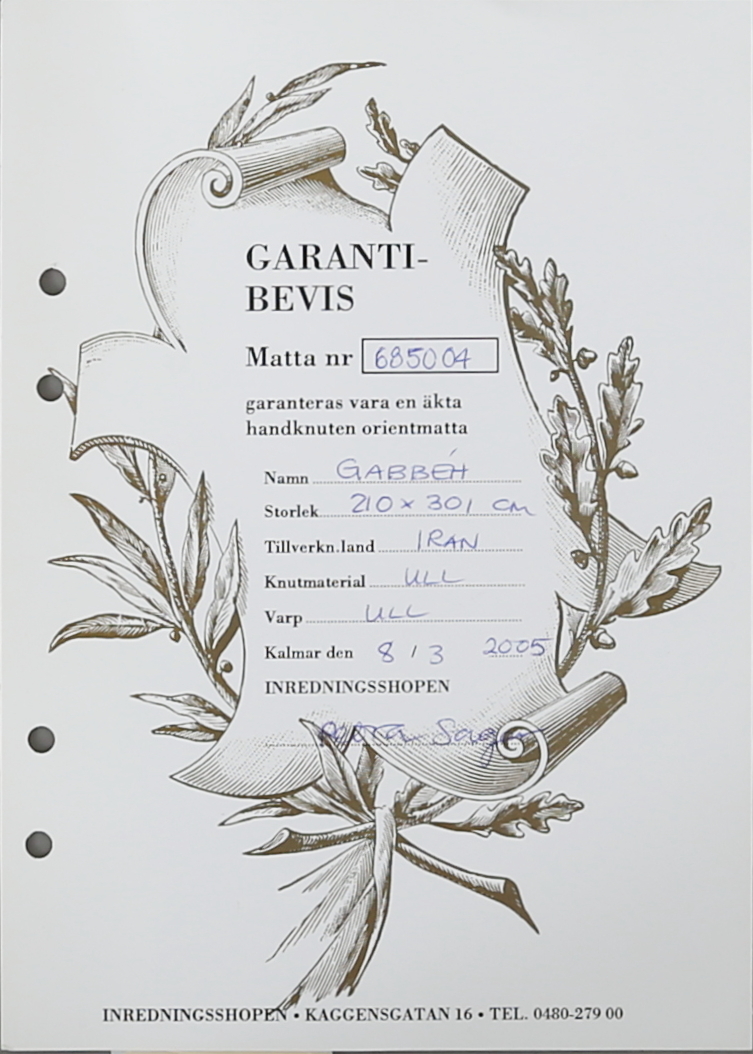 GARANTI-
BEVIS
Matta nr 685004
garanteras vara en äkta
handknuten orientmatta
Namn GABBÉH
Storlek 210 x 301 cm
Tillverkn.land IRAN
Knutmaterial ULL
Varp ULL
Kalmar den 8 / 3 2005
INREDNINGSSHOPEN
INREDNINGSSHOPEN • KAGGENSGATAN 16 • TEL. 0480-279 00